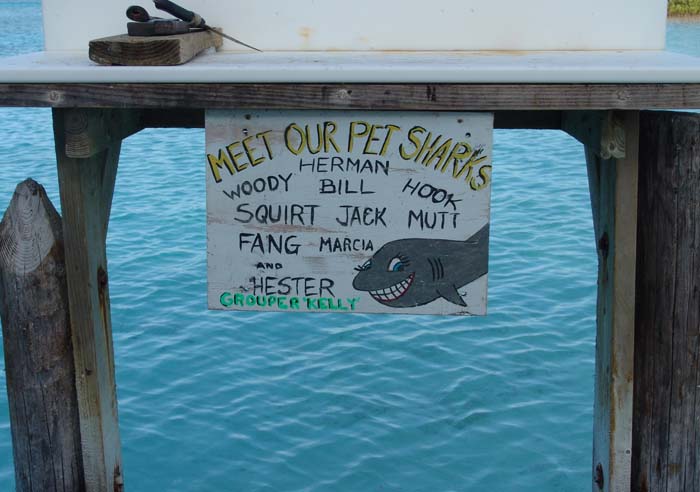 MEET OUR PET SHARKS
HERMAN
WOODY BILL HOOK
SQUIRT JACK MUTT
FANG MARCIA
AND
HESTER
GROUPER "KELLY"